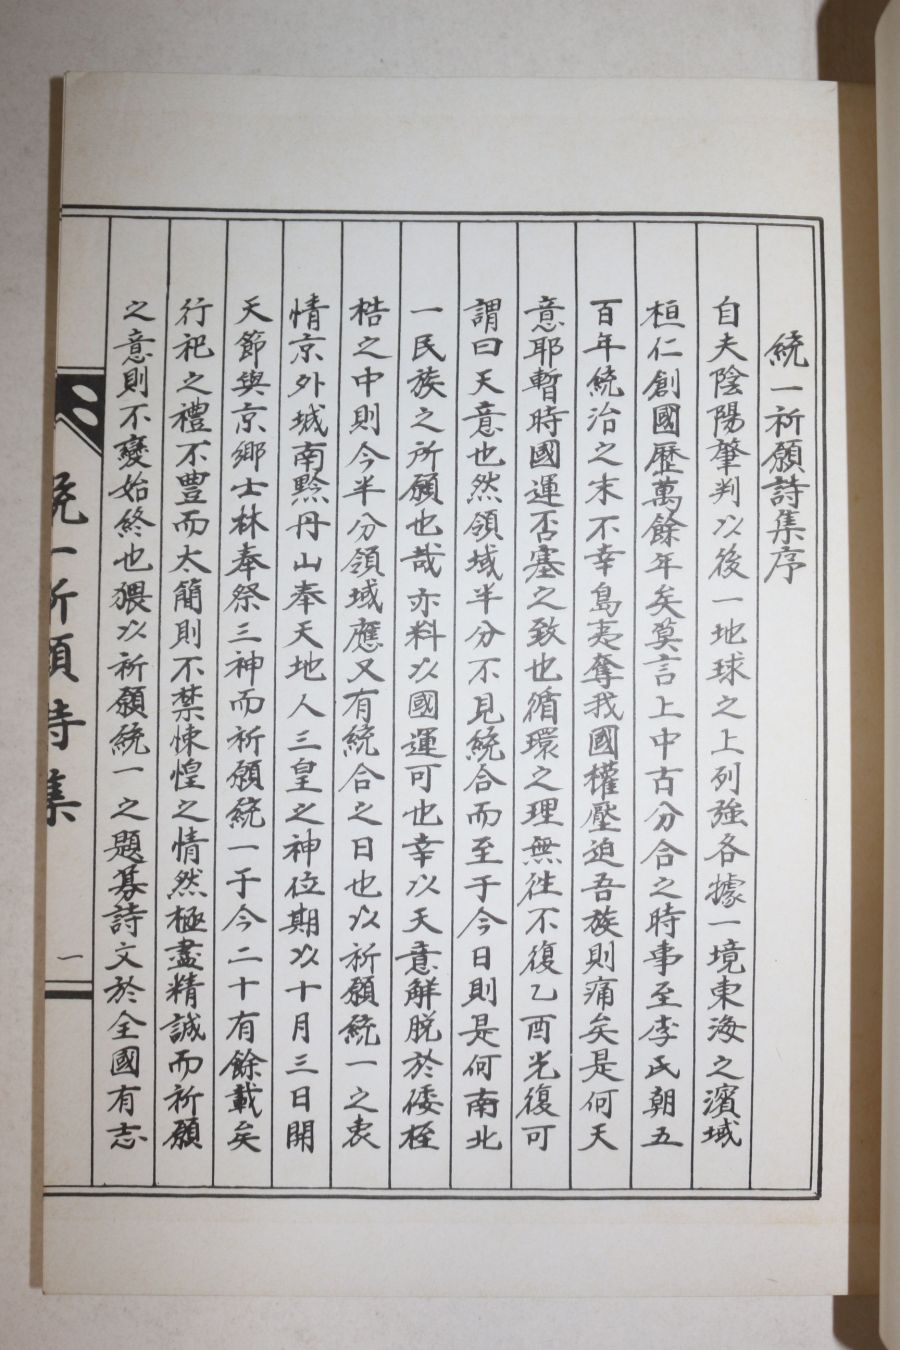 統一祈願詩集序
自夫陰陽肇判以後一地球之上列強各據一境東海之濱域
桓仁創國歷萬餘年矣莫言上中古分合之時事至李氏朝五
百年統治之末不幸島夷奪我國權壓迫吾族則痛矣是何天
意耶暫時國運否塞之致也循環之理無往不復乙酉光復可
謂曰天意也然領域半分不見統合而至于今日則是何南北
一民族之所願也哉亦料以國運可也幸以天意解脫於倭桎
梏之中則今半分領域應又有統合之日也以祈願統一之衷
情京外城南黔丹山奉天地人三皇之神位期以十月三日開
天節與京鄉士林奉祭三神而祈願統一于今二十有餘載矣
行祀之禮不豊而太簡則不禁悚惶之情然極盡精誠而祈願
之意則不變始終也猥以祈願統一之題募詩文於全國有志
統一祈願詩集
一